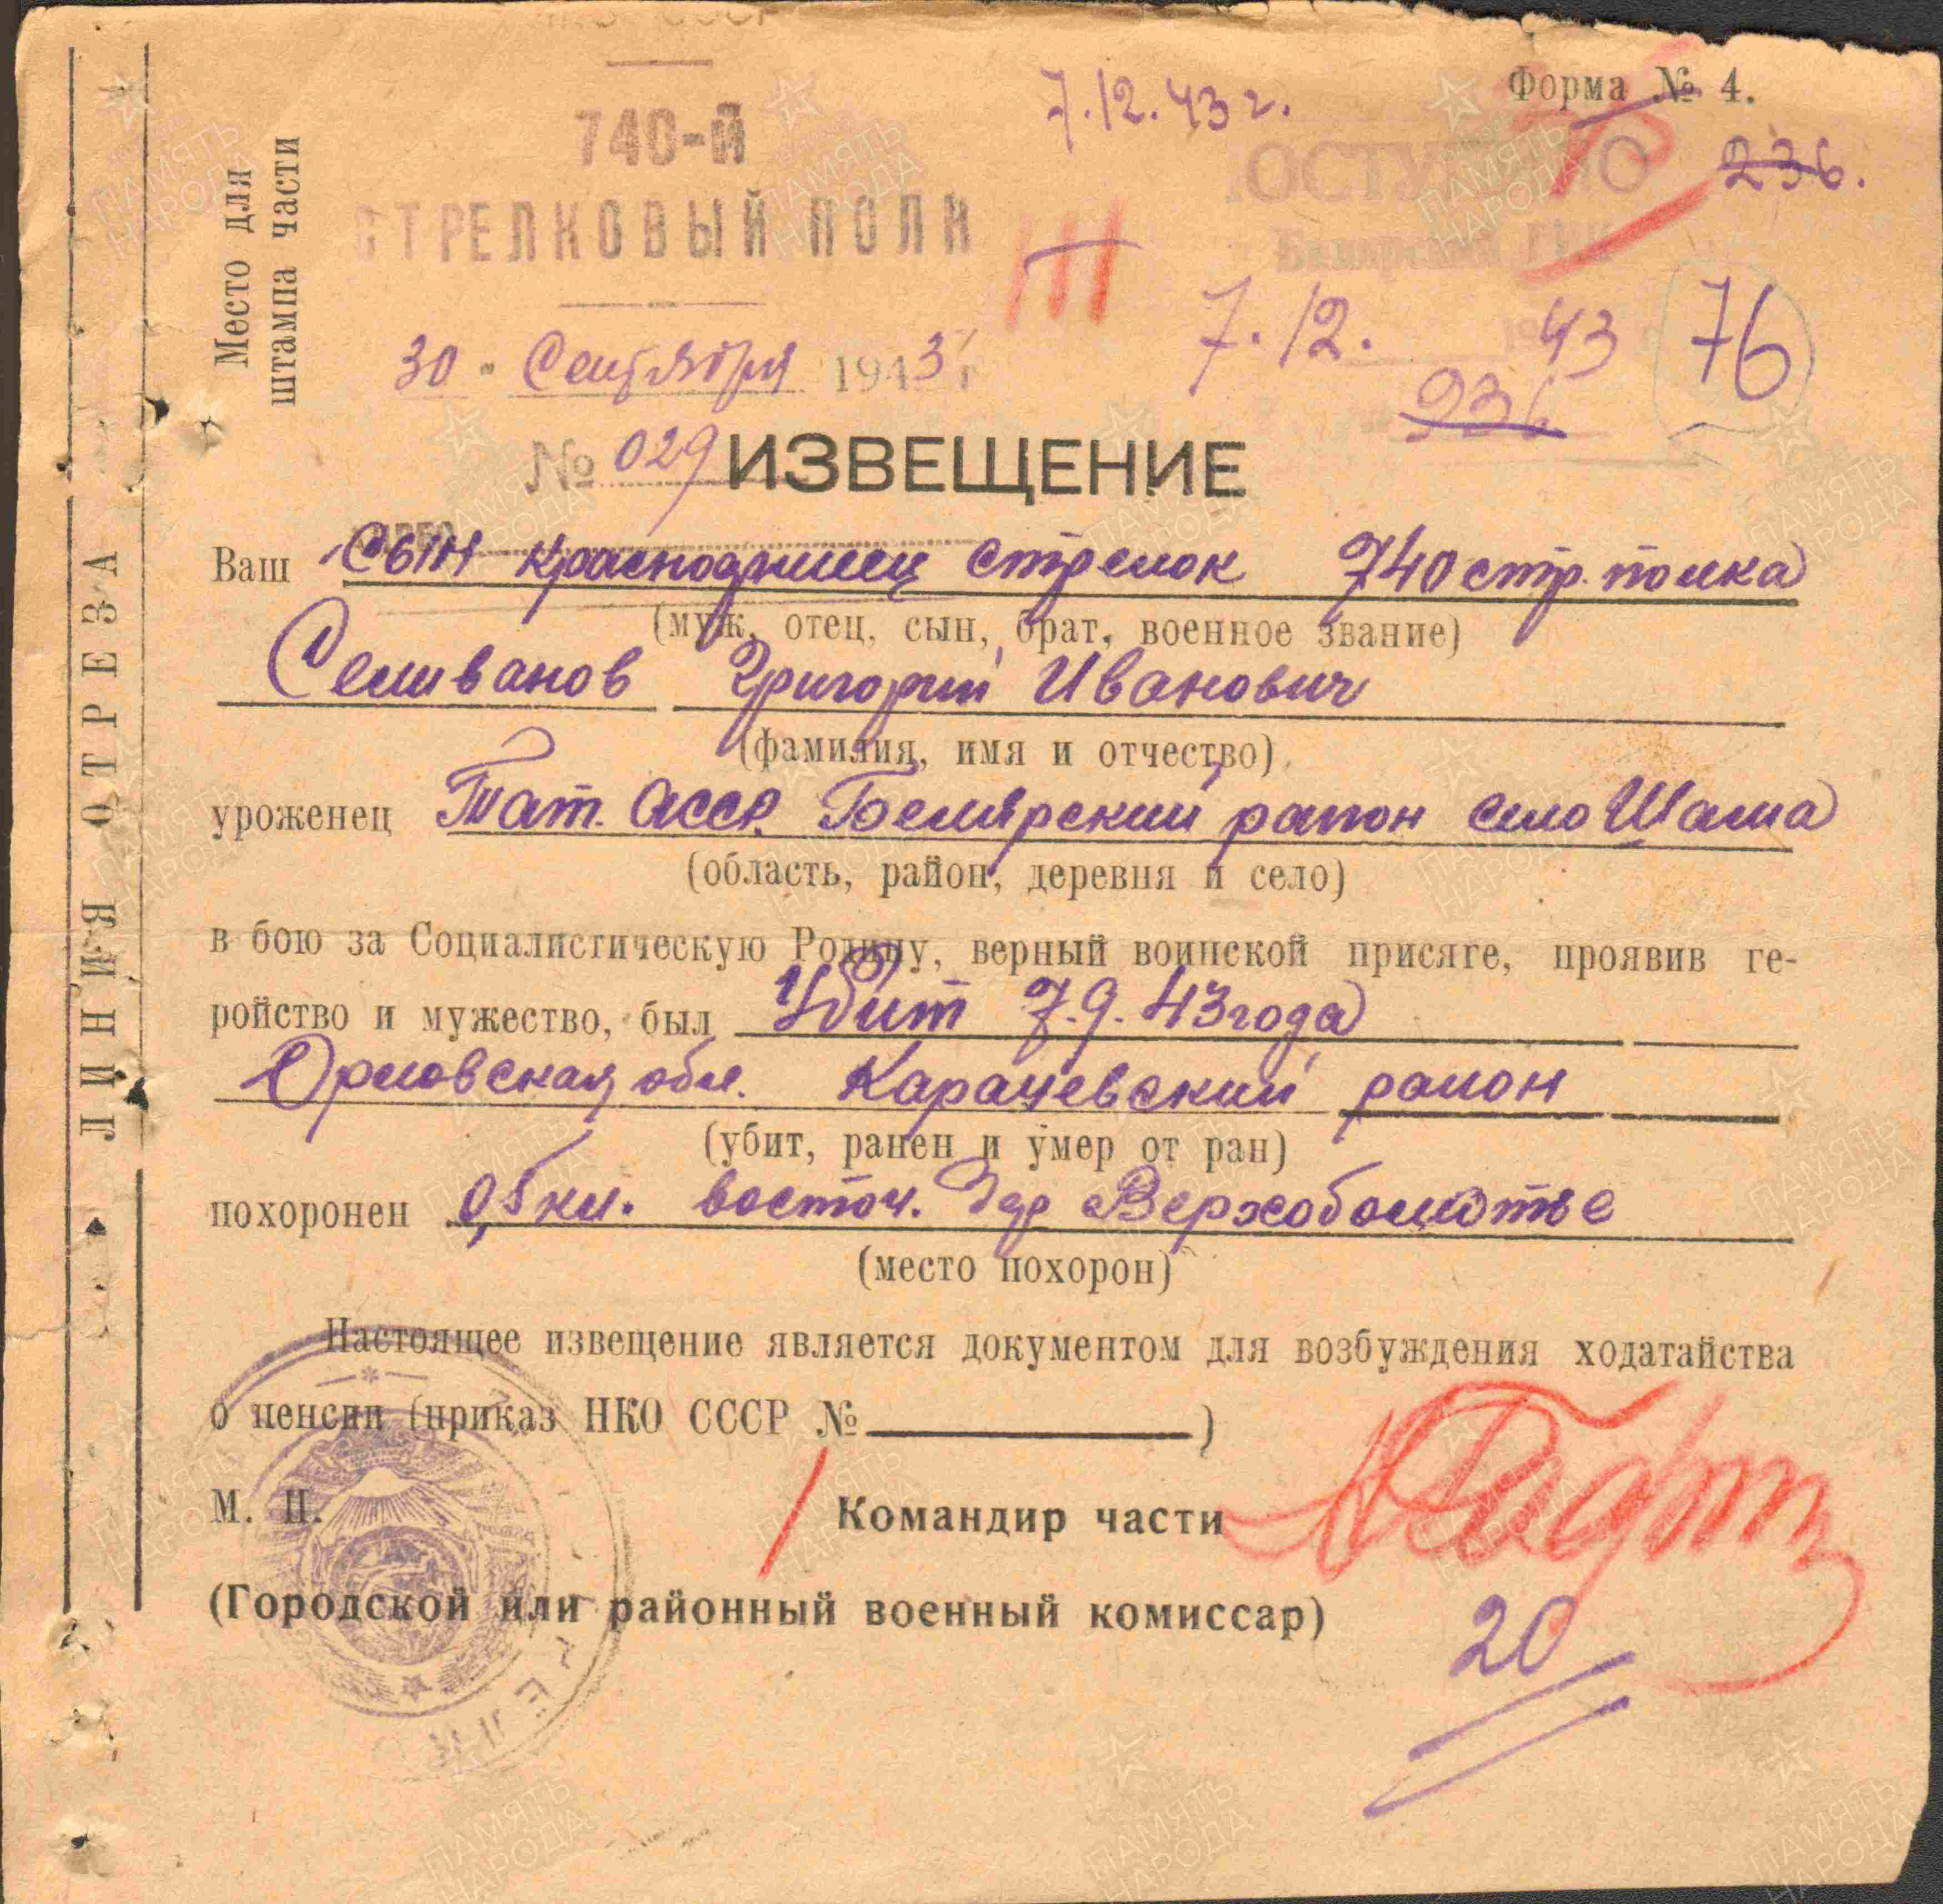 7.12.43 г.
Форма № 4.
740-й
236.
СТРЕЛКОВЫЙ ПОЛК
III
Место для
штампа части
7.12. 43
76
30 - Сентября 1943 г
236
№ 029 ИЗВЕЩЕНИЕ
Ваш сын красноармеец стрелок 740 стр. полка
(муж, отец, сын, брат, военное звание)
Селиванов Григорий Иванович
(фамилия, имя и отчество)
уроженец Тат. АССР. Билярский район село Шама
(область, район, деревня и село)
в бою за Социалистическую Родину, верный воинской присяге, проявив ге-
ройство и мужество, был Убит 7.9.43 года
Орловская обл. Карачевский район
(убит, ранен и умер от ран)
похоронен 0,5 км. восточ. дер Верхоболотье
(место похорон)
Настоящее извещение является документом для возбуждения ходатайства
о пенсии (приказ НКО СССР № )
М. П.
Командир части
(Городской или районный военный комиссар)
20
ЛИНИЯ ОТРЕЗА
ПАМЯТЬ
НАРОДА